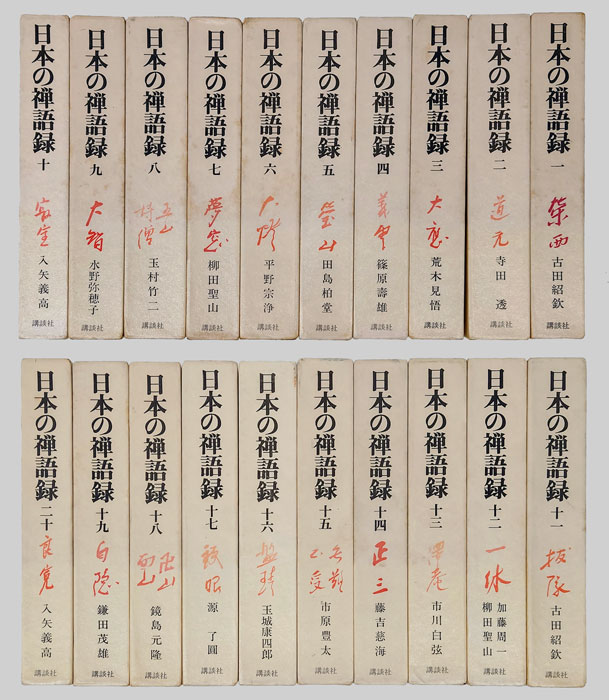 日本の禅語録 一
栄西
古田紹欽
講談社
日本の禅語録 二
道元
寺田 透
講談社
日本の禅語録 三
大應
荒木見悟
講談社
日本の禅語録 四
義雲
篠原壽雄
講談社
日本の禅語録 五
瑩山
田島柏堂
講談社
日本の禅語録 六
大燈
平野宗浄
講談社
日本の禅語録 七
夢窓
柳田聖山
講談社
日本の禅語録 八
五山
詩僧
玉村竹二
講談社
日本の禅語録 九
大智
水野弥穂子
講談社
日本の禅語録 十
寂室
入矢義高
講談社
日本の禅語録 十一
抜隊
古田紹欽
講談社
日本の禅語録 十二
一休
加藤周一
柳田聖山
講談社
日本の禅語録 十三
沢庵
市川白弦
講談社
日本の禅語録 十四
正三
藤吉慈海
講談社
日本の禅語録 十五
無難
正受
市原豊太
講談社
日本の禅語録 十六
盤珪
玉城康四郎
講談社
日本の禅語録 十七
鉄眼
源 了圓
講談社
日本の禅語録 十八
卍山
面山
鏡島元隆
講談社
日本の禅語録 十九
白隠
鎌田茂雄
講談社
日本の禅語録 二十
良寛
入矢義高
講談社